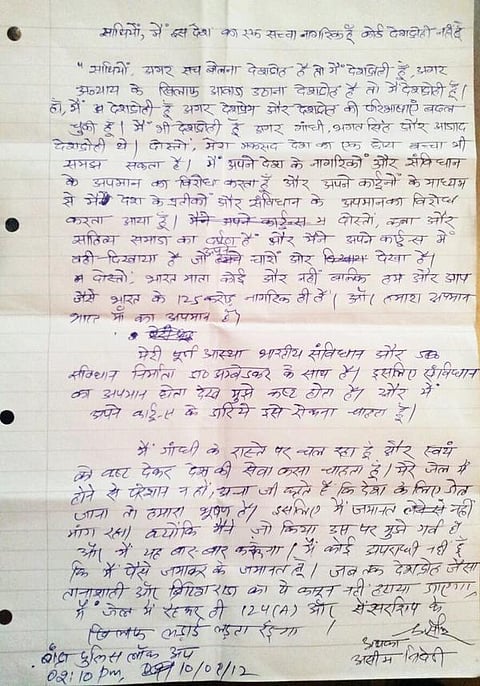 साथियों, मैं इस देश का एक सच्चा नागरिक हूँ कोई देशद्रोही नहीं हूँ
" साथियों, अगर सच बोलना देशद्रोह है तो मैं देशद्रोही हूँ, अगर
अन्याय के खिलाफ आवाज उठाना देशद्रोह है तो मैं देशद्रोही हूँ।
हाँ, मैं देशद्रोही हूँ अगर देशप्रेम और देशद्रोह की परिभाषाएं बदल
चुकी हैं। मैं भी देशद्रोही हूँ अगर गांधी, भगत सिंह और आजाद
देशद्रोही थे। दोस्तों, मेरा मकसद देश का एक छोटा बच्चा भी
समझ सकता है। मैं अपने देश के नागरिकों और संविधान
के अपमान का विरोध करता हूँ और अपने कार्टूनों के माध्यम
से मैंने देश के प्रतीकों और संविधान के अपमान का विरोध
करता आया हूँ। मैंने अपने कार्टून्स में दोस्तों, कला और
साहित्य समाज का दर्पण है और मैंने अपने कार्टून्स में
वही दिखाया है जो अपने चारों ओर देखा है।
दोस्तों, भारत माता कोई और नहीं बल्कि हम और आप
जैसे भारत के 125 करोड़ नागरिक ही हैं। और हमारा अपमान
भारत माँ का अपमान है।
मेरी पूर्ण आस्था भारतीय संविधान और
संविधान निर्माता डा० अम्बेडकर के साथ है। इसलिए संविधान
का अपमान होता देख मुझे कष्ट होता है। और मैं
अपने कार्टून्स के जरिये इसे रोकना चाहता हूँ।
मैं गांधी के रास्ते पर चल रहा हूँ और स्वयं
को कष्ट देकर देश की सेवा करना चाहता हूँ। मेरे जेल में
होने से परेशान न हों, अन्ना जी कहते हैं कि देश के लिए जेल
जाना तो हमारा भूषण है। इसलिए मैं जमानत नहीं
मांग रहा। क्योंकि मैंने जो किया उस पर मुझे गर्व है
और मैं यह बार बार करूंगा। मैं कोई अपराधी नहीं हूँ
कि मैं पैसे जमाकर के जमानत लूँ। जब तक देशद्रोह जैसा
तानाशाही और ब्रिटिश राज का ये कानून नहीं हटाया जाएगा,
मैं जेल में रहकर ही 124(A) और सेंसरशिप के
खिलाफ लड़ाई लड़ता रहूंगा।
आपका
पुलिस लॉक अप
असीम त्रिवेदी
02:10 pm, 10/09/12